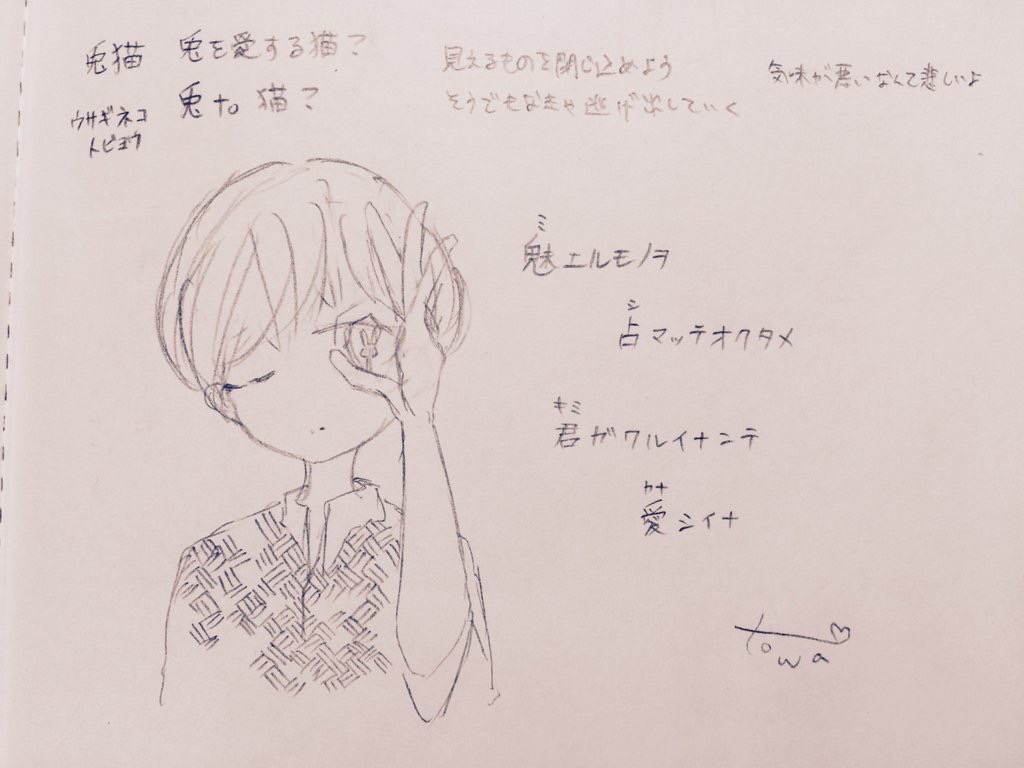 兎猫 兎を愛する猫？
兎 to 猫？
ウサギネコ
トビョウ
見えるものを閉じ込めよう
そうでもなきゃ逃げ出していく
気味が悪いなんて悲しいよ
ミ
魅エルモノヲ
シ
占マッテオクタメ
キミ
君ガワルイナンテ
カナ
愛シイナ
towa